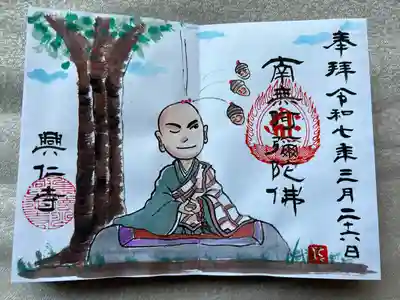 奉拝 令和七年三月二十八日
南無阿彌陀佛
興仁寺